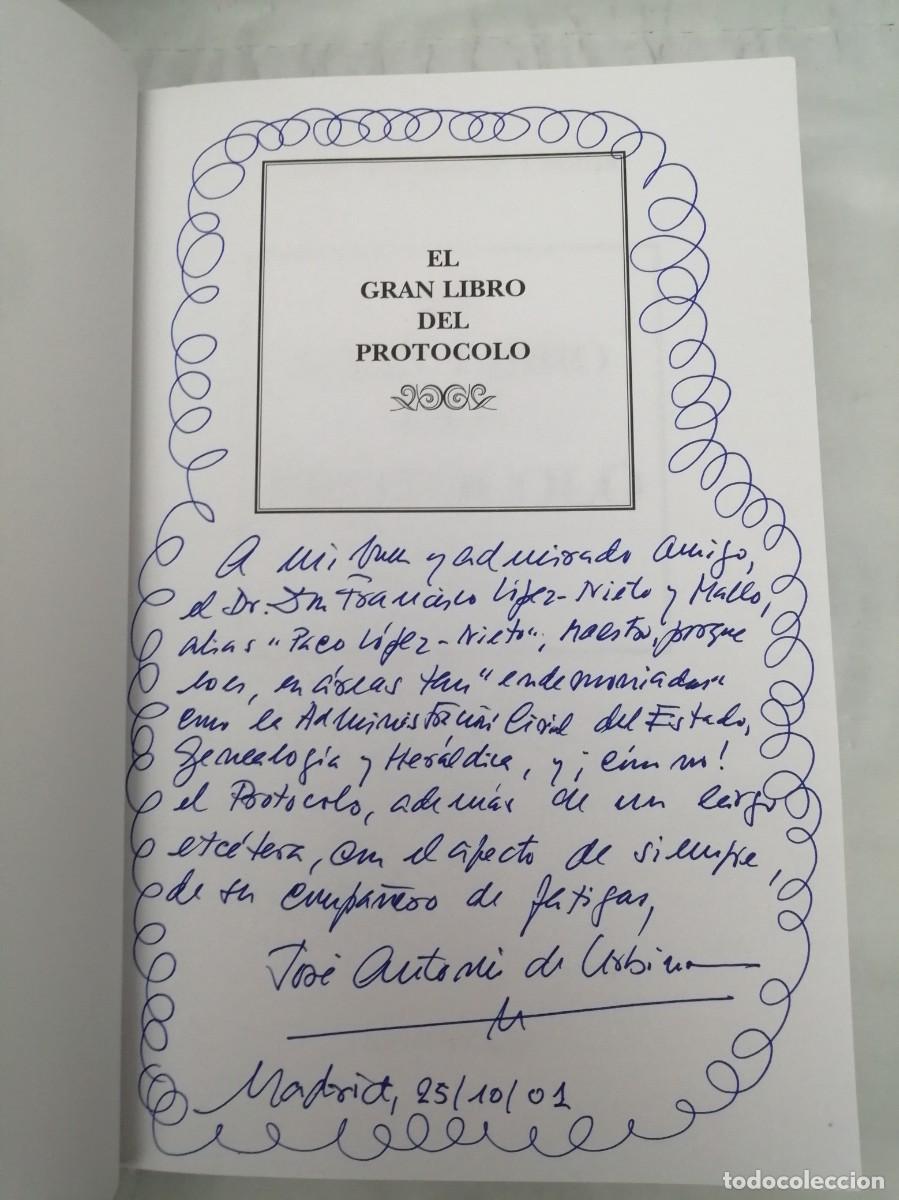 EL
GRAN LIBRO
DEL
PROTOCOLO
A mi buen y admirado amigo,
el Dr. Don Francisco López-Nieto y Mallo,
alias "Paco López-Nieto", Maestro, porque
lo es, en áreas tan "endemoniadas"
como la Administración Civil del Estado,
Genealogía y Heráldica, y ¡cómo no!
el Protocolo, además de un largo
etcétera, con el afecto de siempre,
de su compañero de fatigas,
José Antonio de Urbina
Madrid, 25/10/01
todocoleccion